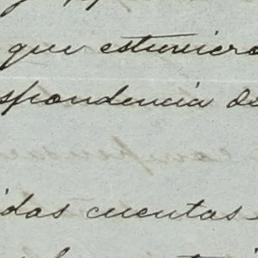 que estuviero
spondencia de
idas cuentas